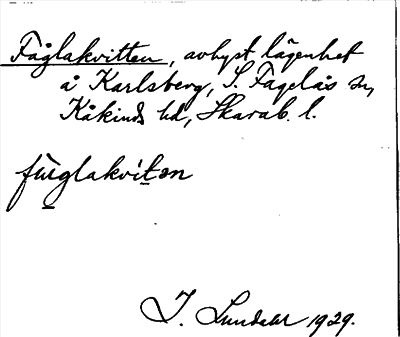 Fåglakvitten, avhyst lägenhet
å Karlsberg, S. Fågelås sn,
Kåkinds hd, Skarab. l.
fûglakvít̲ən
I. Lundahl 1929.